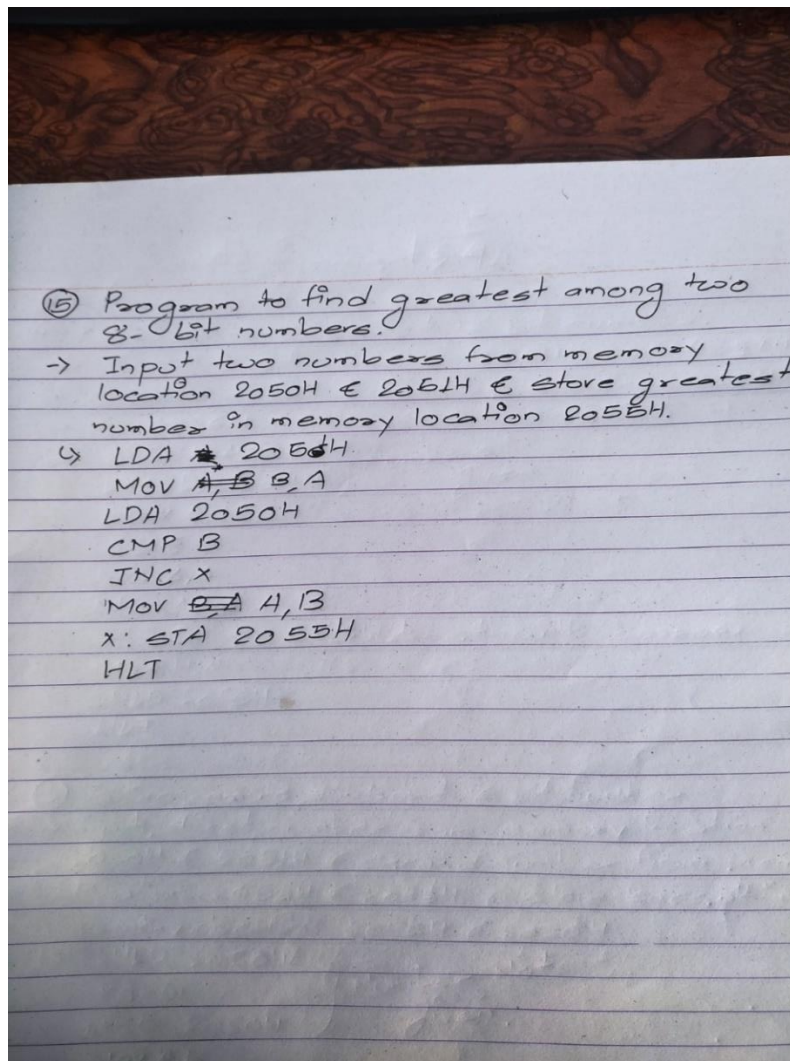 15 Program to find greatest among two
8-bit numbers.
→ Input two numbers from memory
location 2050H & 2051H & store greatest
number in memory location 2055H.
↳ LDA 2051H
MOV A,B B,A
LDA 2050H
CMP B
JNC X
MOV B,A A,B
X: STA 2055H
HLT